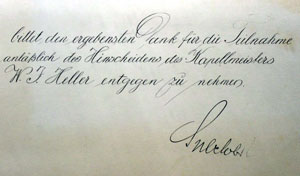 bittet den ergebensten Dank für die Teilnahme
anläßlich des Hinscheidens des Kapellmeisters
W. J. Heller entgegen zu nehmen.